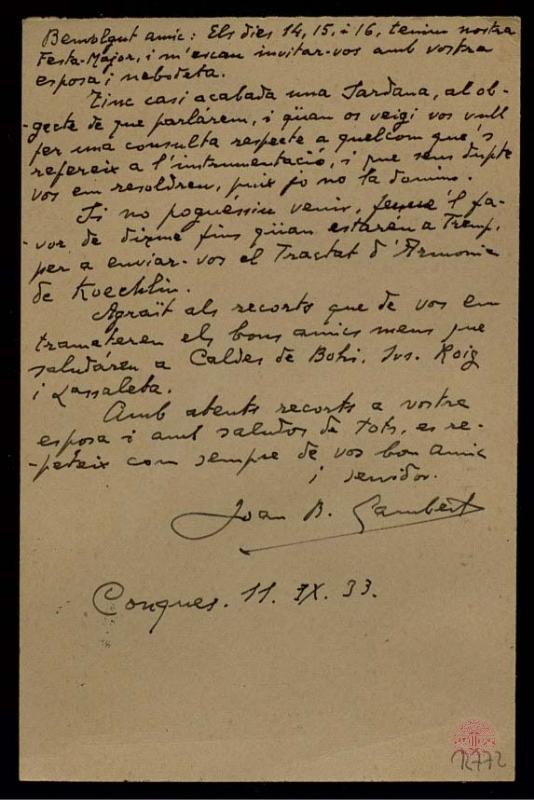 Benvolgut amic: Els dies 14, 15, i 16, tenim nostra
Festa-Major, i m'escau invitar-vos amb vostra
esposa i neboteta.
Tinc casi acabada una Sardana, al ob-
-gecte de que parlárem, i qüan os veigi vos vull
fer una consulta respecte a quelcom que's
refereix a l'instrumentació, i que sens dupte
vos em resoldreu, puix jo no la domino.
Si no poguéssiu venir, feume'l fa-
-vor de dirme fins qüan estaréu a Tremp,
per a enviar-vos el Tractat d'Armonia
de Koechlin.
Agraït als recorts que de vos em
trameteren els bons amics meus que
saludáren a Caldes de Bohí, Srs. Roig
i Lassaleta.
Amb atents recorts a vostra
esposa i amb saludos de tots, es re-
-peteix com sempre de vos bon amic
i servidor.
Joan B. Lambert
Conques. 11. IX. 33.
12772